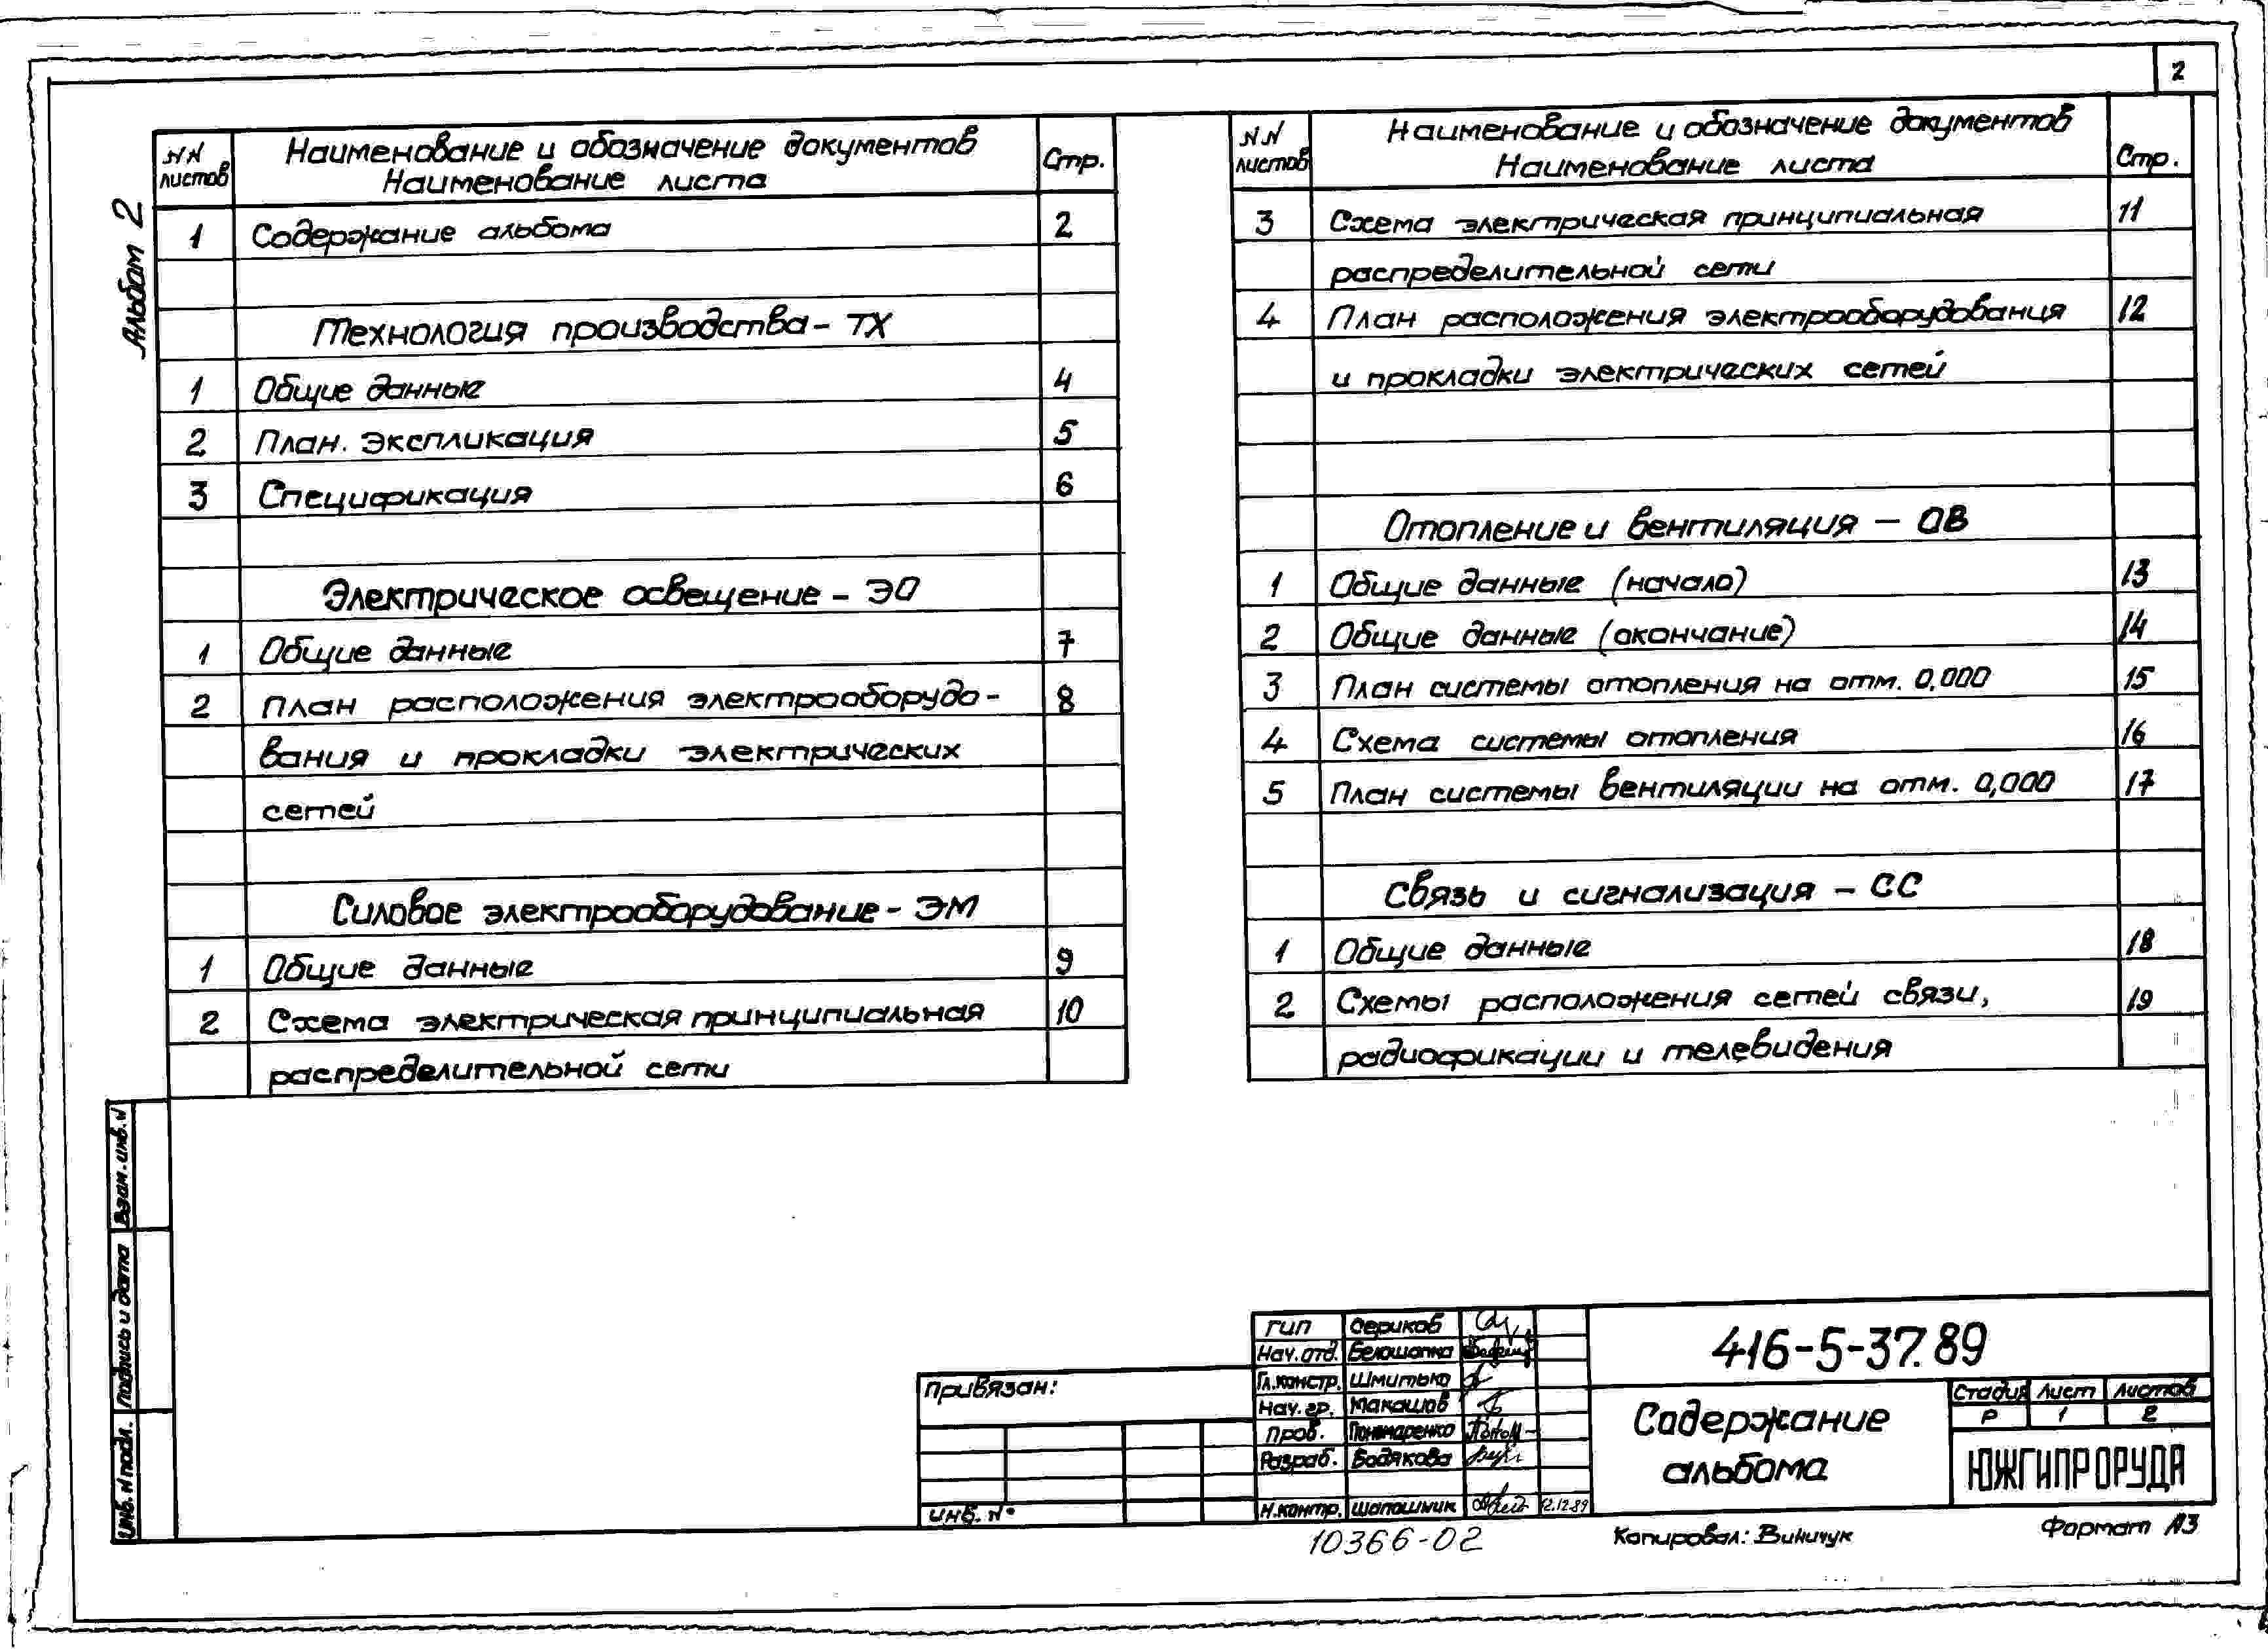 2
Альбом 2
NN листов
Наименование и обозначение документов
Наименование листа
Стр.
1 Содержание альбома 2
Технология производства - ТХ
1 Общие данные 4
2 План. Экспликация 5
3 Спецификация 6
Электрическое освещение - ЭО
1 Общие данные 7
2 План расположения электрооборудо- 8
вания и прокладки электрических
сетей
Силовое электрооборудование - ЭМ
1 Общие данные 9
2 Схема электрическая принципиальная 10
распределительной сети
NN листов
Наименование и обозначение документов
Наименование листа
Стр.
3 Схема электрическая принципиальная 11
распределительной сети
4 План расположения электрооборудования 12
и прокладки электрических сетей
Отопление и вентиляция - ОВ
1 Общие данные (начало) 13
2 Общие данные (окончание) 14
3 План системы отопления на отм. 0,000 15
4 Схема системы отопления 16
5 План системы вентиляции на отм. 0,000 17
Связь и сигнализация - СС
1 Общие данные 18
2 Схемы расположения сетей связи, 19
радиофикации и телевидения
Взам. инв. N
Подпись и дата
Инв. N подл.
Привязан:
Инв. N°
ГИП Сериков
Нач. отд. Белошапка
Гл. констр. Шмитько
Нач. гр. Макашов
Пров. Пономаренко
Разраб. Бодякова
Н. контр. Шапошник 12.12.89
416-5-37.89
Содержание
альбома
Стадия Лист Листов
Р 1 2
ЮЖГИПРОРУДА
10366-02
Копировал: Виничук
Формат А3